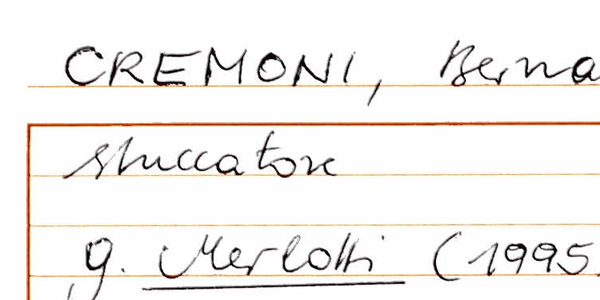 CREMONI, Berna
stuccatore
g. Merlotti (1995